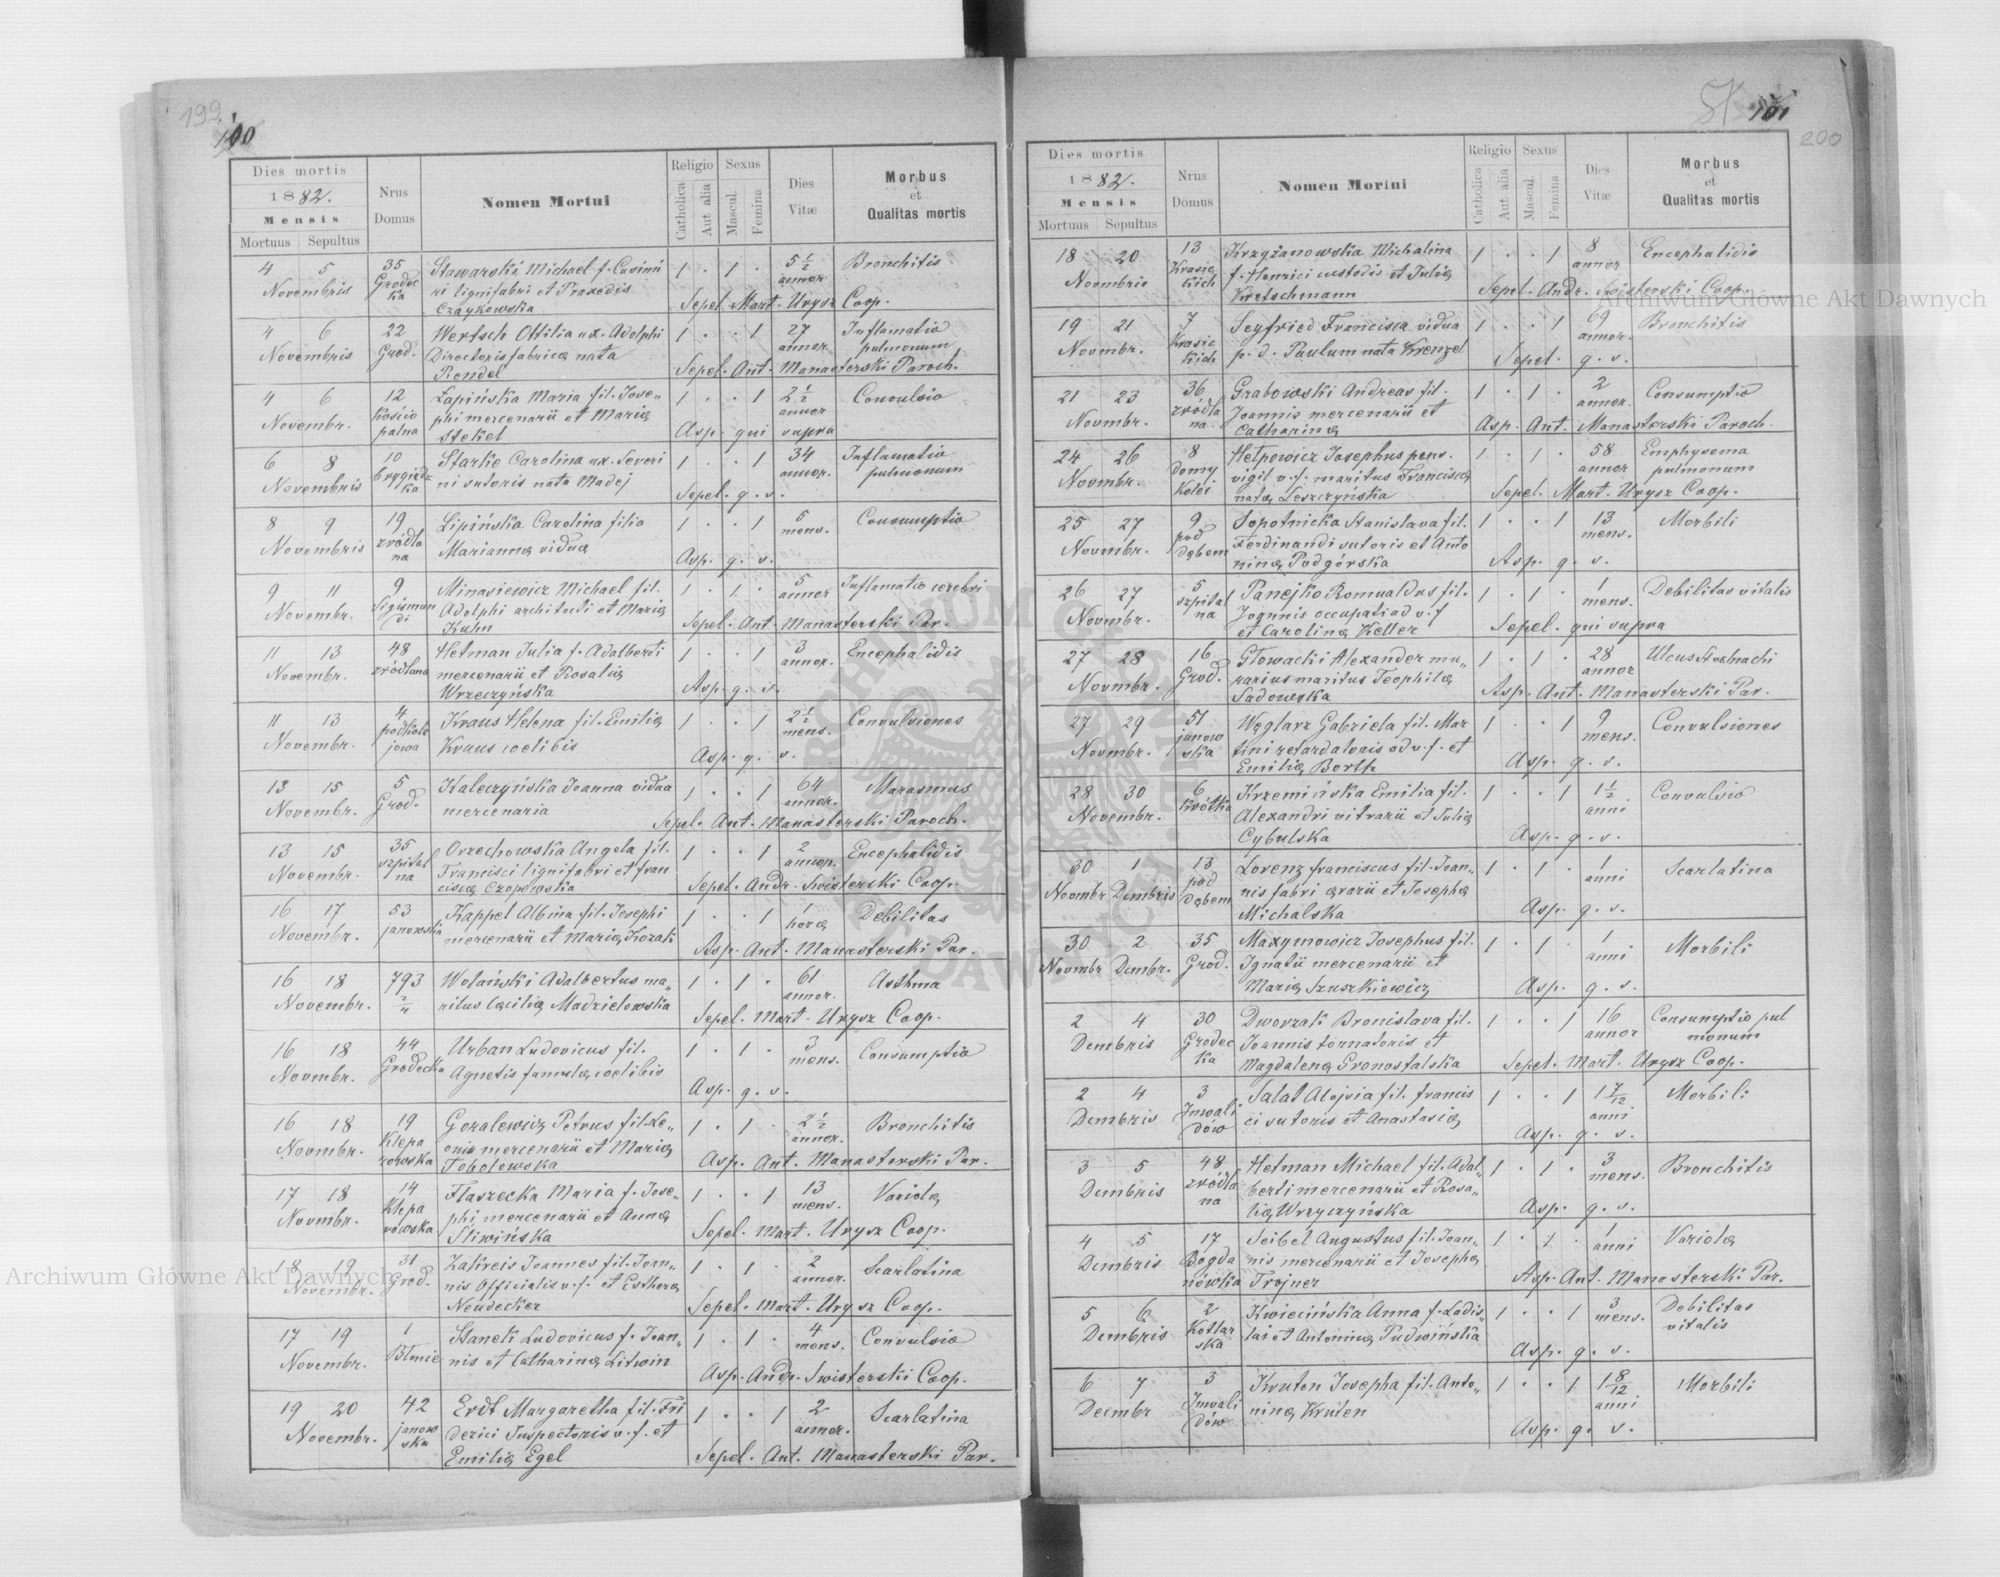 199
100
Dies mortis
1882.
Mensis
Mortuus Sepultus
Nrus
Domus
Nomen Mortui
Religio
Catholica
Aut alia
Sexus
Mascul.
Femina
Dies
Vitæ
Morbus
et
Qualitas mortis
4 5 35 Stawarski Michael f. Casimi 1 . 1 . 5 1/2 Bronchitis
Novembris Grodec ri lignifabri et Praxedis annor
ka Czaykowska Sepel. Mart. Urysz Coop.
4 6 22 Wertsch Ottilia ux. Adolphi 1 . . 1 27 Inflamatio
Novembris Grod. Directoris fabricæ nata annor. pulmonum
Rendel Sepel. Ant. Manasterski Paroch.
4 6 12 Łapińska Maria fil. Jose- 1 . . 1 2 1/2 Convulsio
Novembr. Kościo phi mercenarii et Mariæ annor
palna Stekel Asp. qui supra
6 8 10 Starke Carolina ux. Severi 1 . . 1 34 Inflamatio
Novembris brygidz ni sutoris nata Madej annor. pulmonum
ka Sepel. q. s.
8 9 19 Lipińska Carolina filia 1 . . 1 5 Consumptio
Novembris zródla Mariannæ viduæ mens.
na Asp. q. s.
9 11 9 Minasiewicz Michael fil. 1 . 1 . 5 Inflamatio cerebri
Novembr. Sigismun Adolphi architecti et Mariæ annor
di Kuhn Sepel. Ant. Manasterski Par.
11 13 48 Hetman Julia f. Adalberti 1 . . 1 3 Encephalidis
Novembr. zródlana mercenarii et Rosaliæ annor.
Wrzeczyńska Asp. q. s.
11 13 4 Kraus Helena fil. Emiliæ 1 . . 1 2 1/2 Convulsiones
Novembr. podkole Kraus coelibis mens.
jowa Asp. q. s.
13 15 5 Kaleczyńska Joanna vidua 1 . . 1 64 Marasmus
Novembr. Grod. mercenaria annor.
Sepel. Ant. Manasterski Paroch.
13 15 35 Orzechowska Angela fil. 1 . . 1 2 Encephalidis
Novembr. szpital Francisci lignifabri et fran annor.
na ciscæ Czopowska Sepel. Andr. Swisterski Coop.
16 17 53 Kappel Albina fil. Josephi 1 . . 1 1 Debilitas
Novembr. janowska mercenarii et Mariæ Kozak horæ
Asp. Ant. Manasterski Par.
16 18 793 Wolański Adalbertus ma- 1 . 1 . 61 Asthma
Novembr. 2/4 ritus Cæciliæ Madzielowska annor.
Sepel. Mart. Urysz Coop.
16 18 44 Urban Ludovicus fil. 1 . 1 . 3 Consumptio
Novembr. Grodecka Agnetis famulæ coelibis mens.
Asp. q. s.
16 18 19 Goralewicz Petrus fil. Le- 1 . 1 . 2 1/2 Bronchitis
Novmbr. Klepa onis mercenarii et Mariæ annor.
rowska Tobolewska Asp. Ant. Manasterski Par.
17 18 14 Flaszecka Maria f. Jose- 1 . . 1 13 Variolæ
Novmbr. Klepa phi mercenarii et Annæ mens.
rowska Śliwińska Sepel. Mart. Urysz Coop.
18 19 31 Zakreis Joannes fil. Joan- 1 . 1 . 2 Scarlatina
Novembr. Grod. nis Officialis v.f. et Estheræ annor.
Neudecker Sepel. Mart. Urysz Coop.
17 19 1 Stanek Ludovicus f. Joan- 1 . 1 . 4 Convulsio
Novembr. Błmie nis et Catharinæ Litwin mens.
Asp. Andr. Swisterski Coop.
19 20 42 Erdt Margaretha fil. Fri 1 . . 1 2 Scarlatina
Novembr. janow derici Inspectoris v.f. et annor.
ska Emiliæ Egel Sepel. Ant. Manasterski Par.
101
200
Dies mortis
1882.
Mensis
Mortuus Sepultus
Nrus
Domus
Nomen Mortui
Religio
Catholica
Aut alia
Sexus
Mascul.
Femina
Dies
Vitæ
Morbus
et
Qualitas mortis
18 20 13 Krzyżanowska Michalina 1 . . 1 8 Encephalidis
Novmbris Krasic f. Henrici custodis et Juliæ annor
kich Kretschmann Sepel. Andr. Swisterski Coop.
19 21 7 Seyfried Francisca vidua 1 . . 1 69 Bronchitis
Novmbr. Krasic p. d. Paulum nata Krenzel annor.
kich Sepel. q. s.
21 23 36 Grabowski Andreas fil. 1 . 1 . 2 Consumptio
Novmbr. zródla Joannis mercenarii et annor.
na Catharinæ Asp. Ant. Manasterski Paroch.
24 26 8 Hetpowicz Josephus pens. 1 . 1 . 58 Emphysema
Novmbr. domy vigil v.f. maritus Franciscæ annor pulmonum
Kolei natæ Leszczyńska Sepel. Mart. Urysz Coop.
25 27 9 Sopotnicka Stanislava fil. 1 . . 1 13 Morbili
Novmbr. pod Ferdinandi sutoris et Anto mens.
dębem ninæ Podgórska Asp. q. s.
26 27 5 Panejko Romualdus fil. 1 . 1 . 1 Debilitas vitalis
Novmbr. szpital Joannis occupati ad v.f mens.
na et Carolinæ Keller Sepel. qui supra
27 28 16 Głowacki Alexander mu- 1 . 1 . 28 Ulcus Stomachi
Novmbr. Grod. rarius maritus Teophilæ annor
Sadowska Asp. Ant. Manasterski Par.
27 29 51 Węglarz Gabriela fil. Mar 1 . . 1 9 Convulsiones
Novmbr. janow tini retardatoris ad v.f. et mens.
ska Emiliæ Borth Asp. q. s.
28 30 6 Krzemińska Emilia fil. 1 . . 1 1 1/2 Convulsio
Novembr. Krótka Alexandri vitrarii et Juliæ anni
Cybulska Asp. q. s.
30 1 13 Lorenz franciscus fil. Joan- 1 . 1 . 1 Scarlatina
Novmbr Dcmbris pod nis fabri ærarii et Josephæ anni
Dębem Michalska Asp. q. s.
30 2 35 Maxymowicz Josephus fil. 1 . 1 . 1 Morbili
Novmbr Dcmbr. Grod. Ignatii mercenarii et anni
Mariæ Szuszkiewicz Asp. q. s.
2 4 30 Dworzak Bronislava fil. 1 . . 1 16 Consumptio pul
Dcmbris Grodec Joannis tornatoris et annor monum
ka Magdalenæ Gronostalska Sepel. Mart. Urysz Coop.
2 4 3 Salat Alojsia fil. francis 1 . . 1 1 7/12 Morbili
Dcmbris Inwali ci sutoris et Anastasiæ anni
dów Asp. q. s.
3 5 48 Hetman Michael fil. Adal- 1 . 1 . 3 Bronchitis
Dcmbris zródla berti mercenarii et Rosa- mens.
na liæ Wrzyczyńska Asp. q. s.
4 5 17 Seibel Augustus fil. Joan- 1 . 1 . 1 Variolæ
Dcmbris Bogda nis mercenarii et Josephæ anni
nówka Trojner Asp. Ant. Manasterski Par.
5 6 2 Kwiecińska Anna f. Ladis- 1 . . 1 3 Debilitas
Dcmbris Kotlar lai et Antoninæ Pudwińska mens. vitalis
ska Asp. q. s.
6 7 3 Kruten Josepha fil. Anto- 1 . . 1 1 8/12 Morbili
Decmbr Inwali ninæ Kruten anni
dów Asp. q. s.
Archiwum Główne Akt Dawnych
Archiwum Główne Akt Dawnych
ARCHIWUM GŁÓWNE AKT DAWNYCH